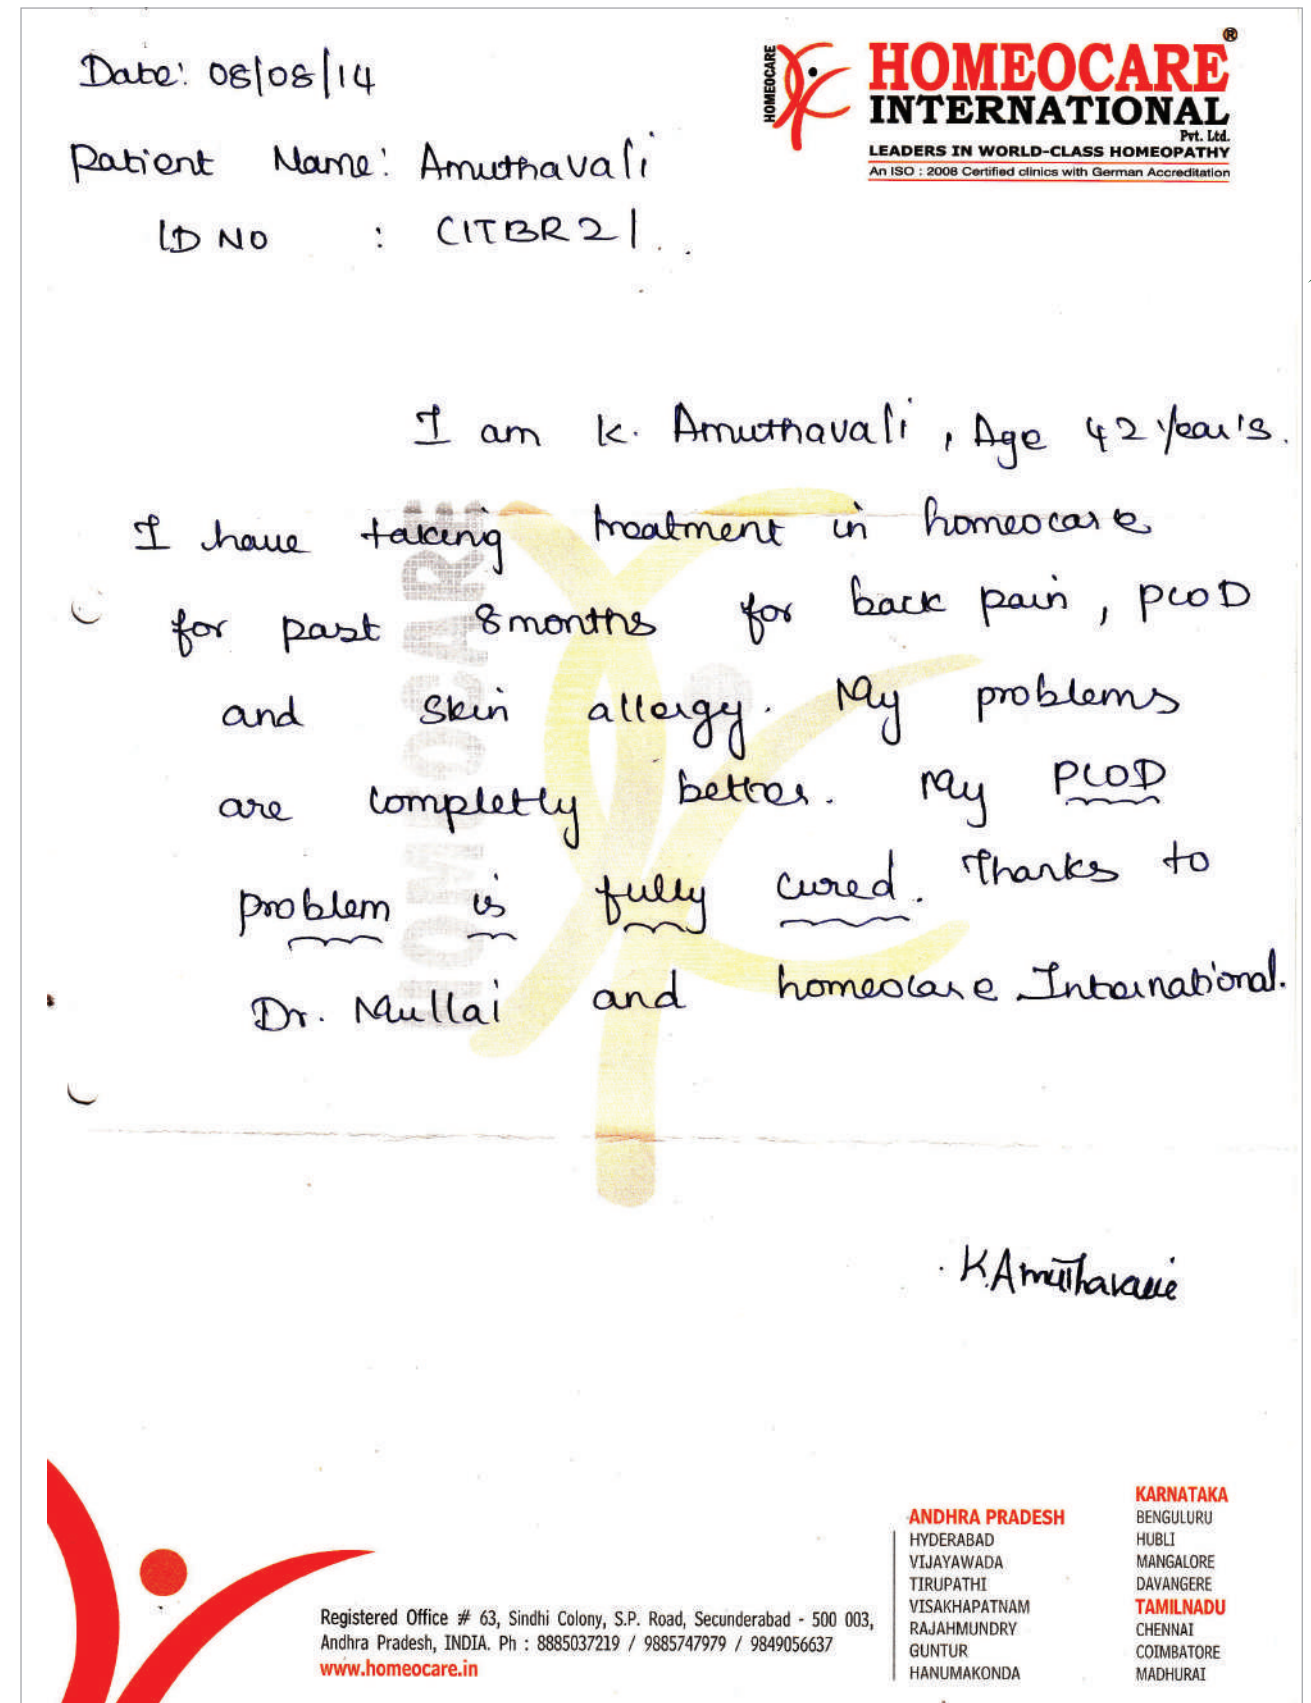 Date: 08/08/14
Patient Name: Amuthavali
ID NO : CITBR21
HOMEOCARE
HOMEOCARE ®
INTERNATIONAL
Pvt. Ltd.
LEADERS IN WORLD-CLASS HOMEOPATHY
An ISO : 2008 Certified clinics with German Accreditation
I am K. Amuthavali, Age 42 year's.
I have taking treatment in homeocare
for past 8 months for back pain, PCOD
and skin allergy. My problems
are completly better. My PCOD
problem is fully cured. Thanks to
Dr. Mullai and homeocare International.
HOMOCARE
K. Amuthavalli
Registered Office # 63, Sindhi Colony, S.P. Road, Secunderabad - 500 003,
Andhra Pradesh, INDIA. Ph : 8885037219 / 9885747979 / 9849056637
www.homeocare.in
ANDHRA PRADESH
HYDERABAD
VIJAYAWADA
TIRUPATHI
VISAKHAPATNAM
RAJAHMUNDRY
GUNTUR
HANUMAKONDA
KARNATAKA
BENGULURU
HUBLI
MANGALORE
DAVANGERE
TAMILNADU
CHENNAI
COIMBATORE
MADHURAI